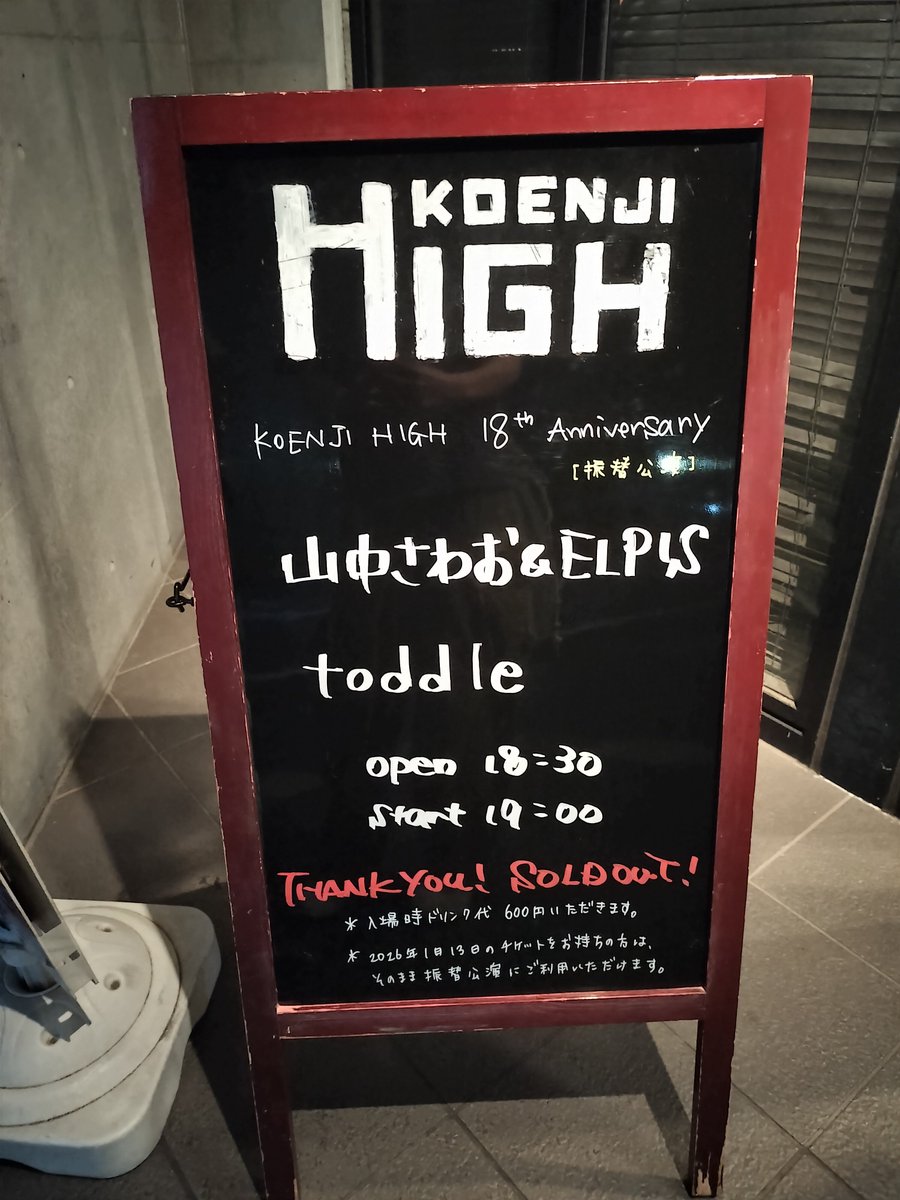 KOENJI
HIGH
KOENJI HIGH 18th Anniversary
[振替公演]
山中さわお&ELPIS
toddle
open 18:30
start 19:00
THANK YOU! SOLD OUT!
※入場時ドリンク代 600円いただきます。
※2026年1月13日のチケットをお持ちの方は、
そのまま振替公演にご利用いただけます。